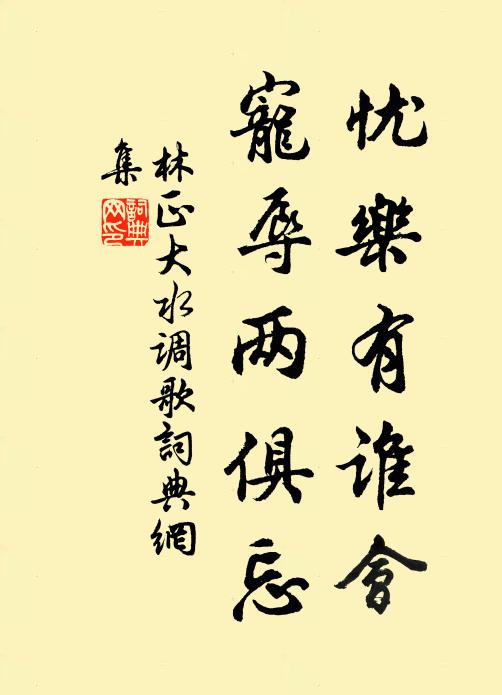 忧樂有谁會
寵辱两俱忘
林正大水调歌詞典網
集
詞典网印